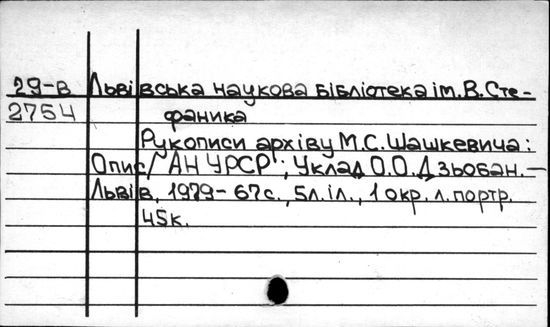 29-В Львівська наукова бібліотека ім. В. Сте-
2754 фаника
Рукописи архіву М.С. Шашкевича:
Опис / АН УРСР ; Уклад О.О. Дзьобан. –
Львів, 1979 – 67с., 5л. іл., 1 окр. л. портр.
45к.